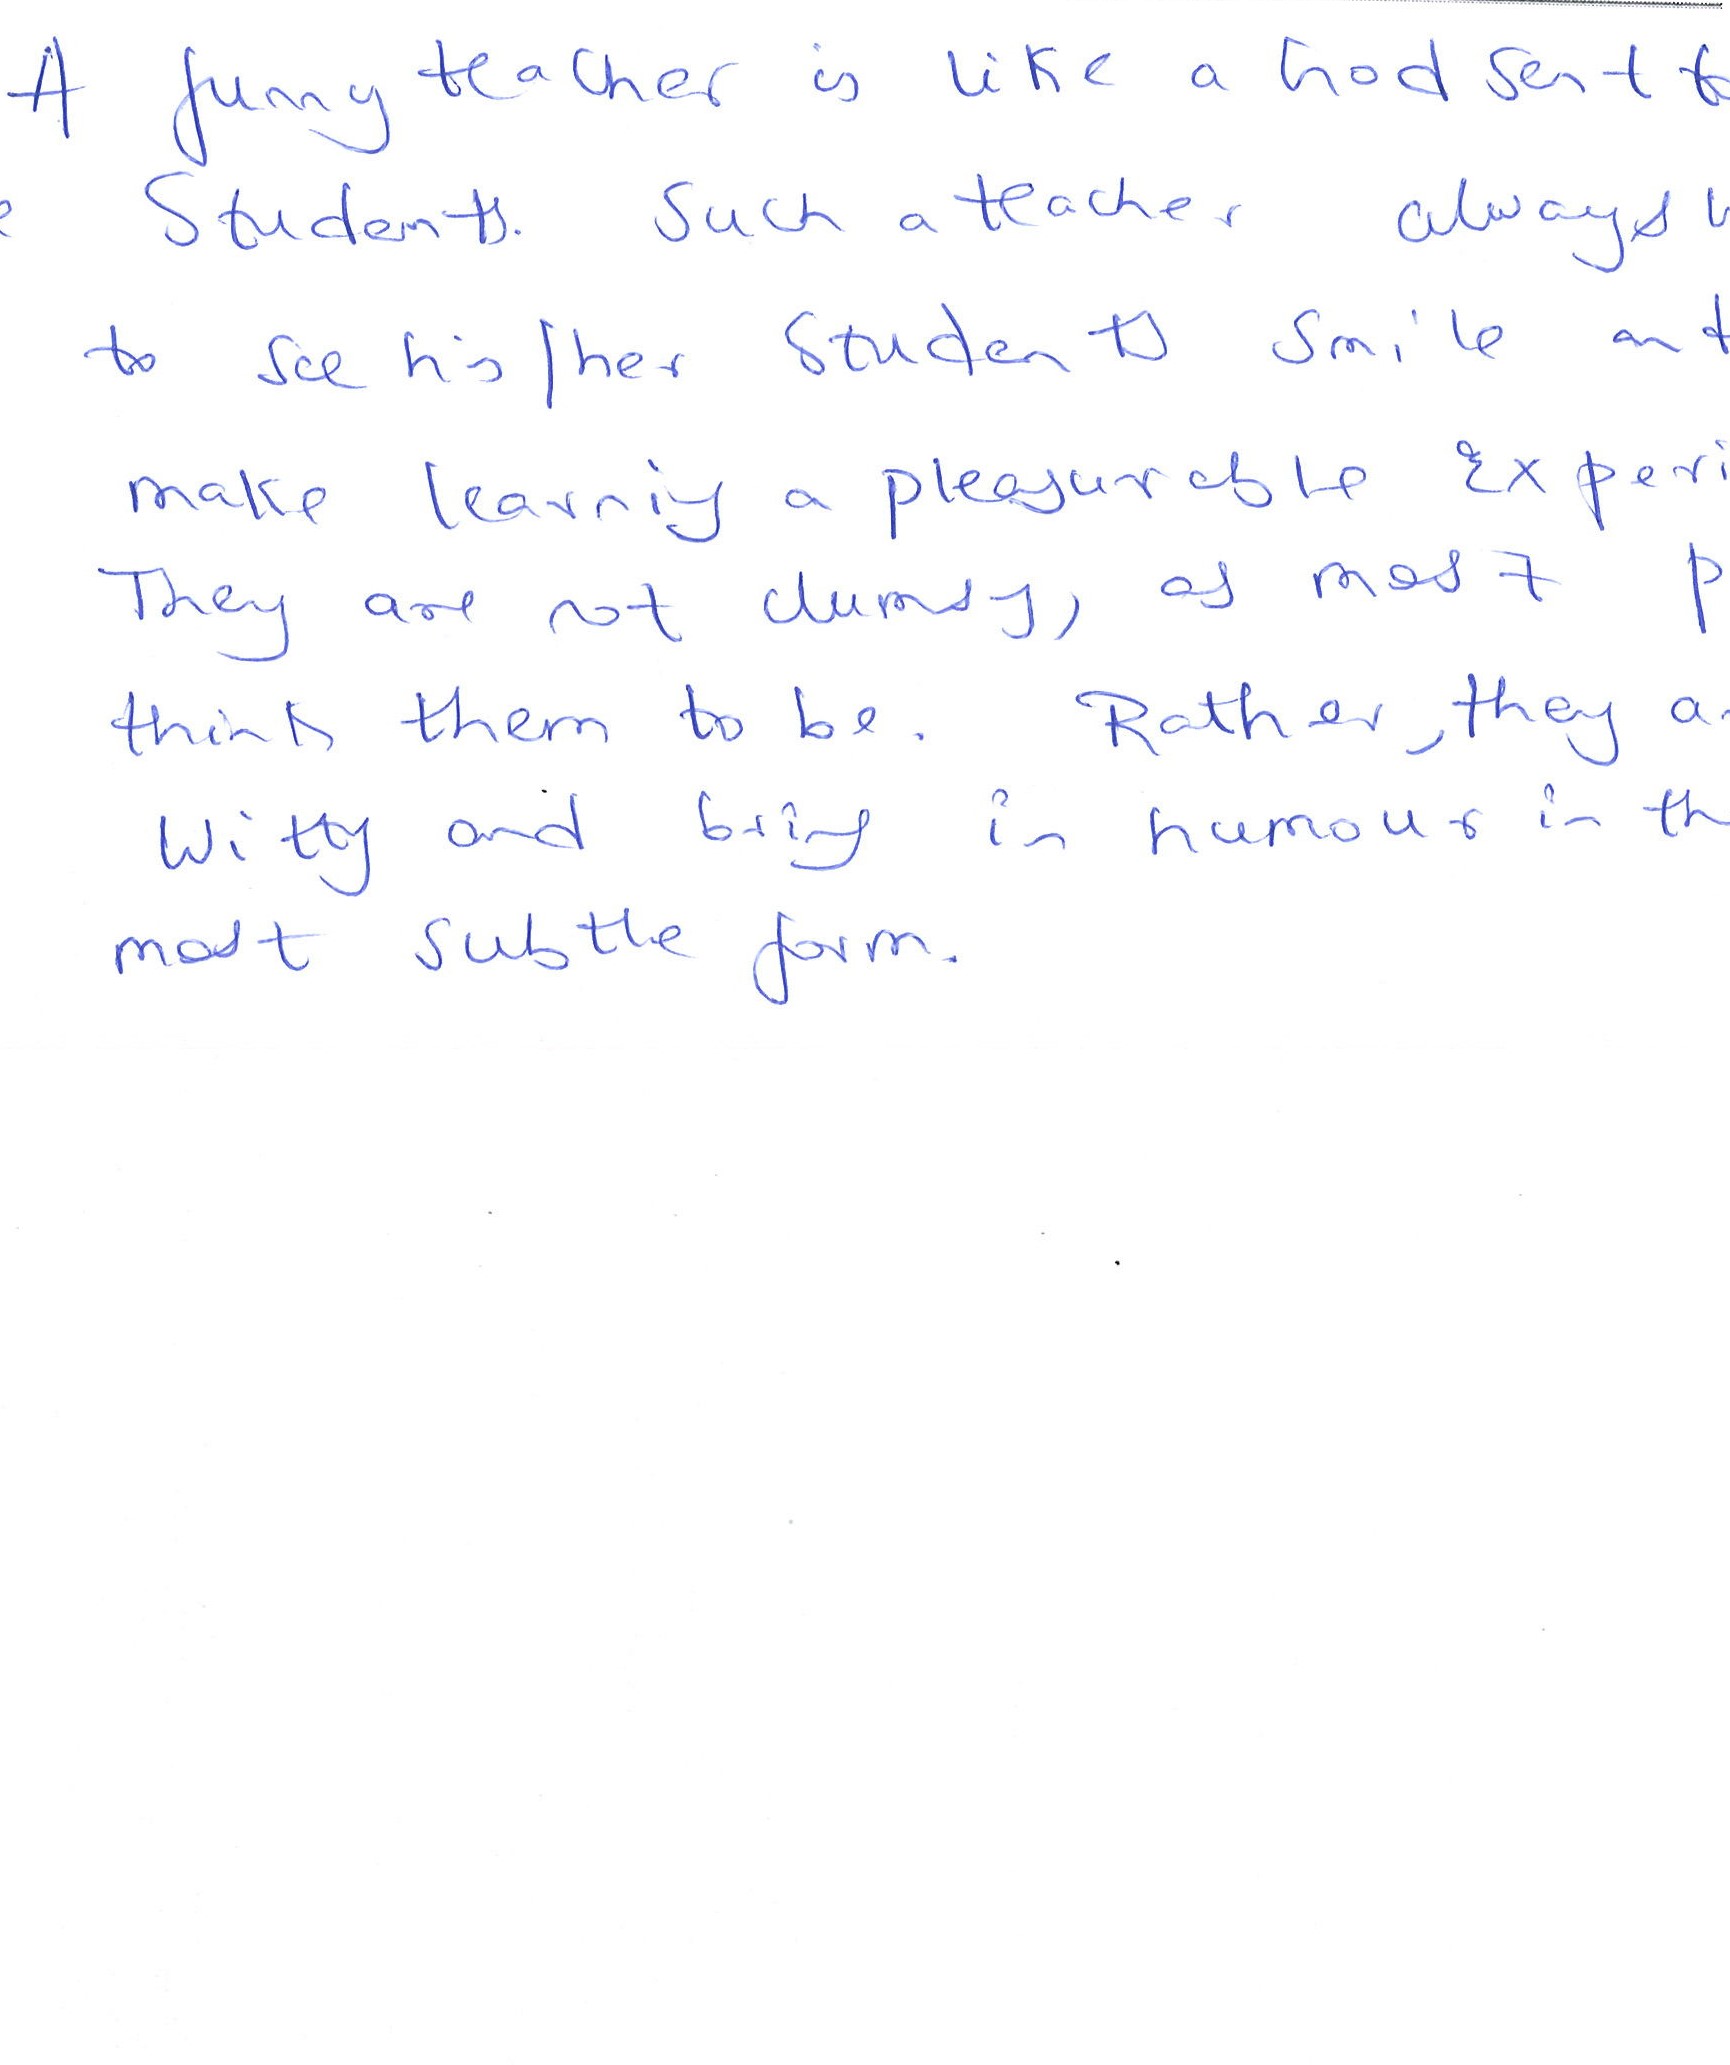 A funny teacher is like a God sent to
Students. Such a teacher always
to see his/her Students smile and
make learning a pleasurable Experi
They are not clumsy, as most p
think them to be. Rather, they a
Witty and bring in humour in th
most subtle form.